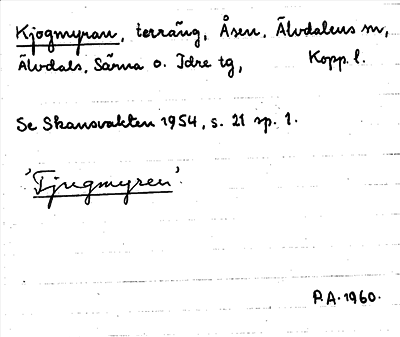 Kjogmyran, terräng, Åsen, Älvdalens sn,
Älvdals, Särna o. Idre tg, Kopp. l.
Se Skansvakten 1954, s. 21 sp. 1.
'Tjugmyren'.
P.A. 1960.